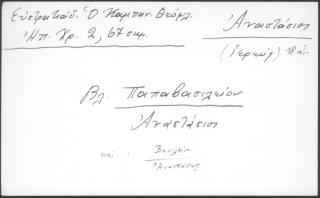 Εὐστρατιάδ. Ὁ Καμπαν. Θεόφιλ.
Ἠπ. Χρ. 2, 67 σημ.
Ἀναστάσιος
(Ἱερεύς) 18 αἰ.
Βλ. Παπαβασιλείου
Ἀναστάσιος
καὶ : Βασιλείου
Ἀναστάσιος